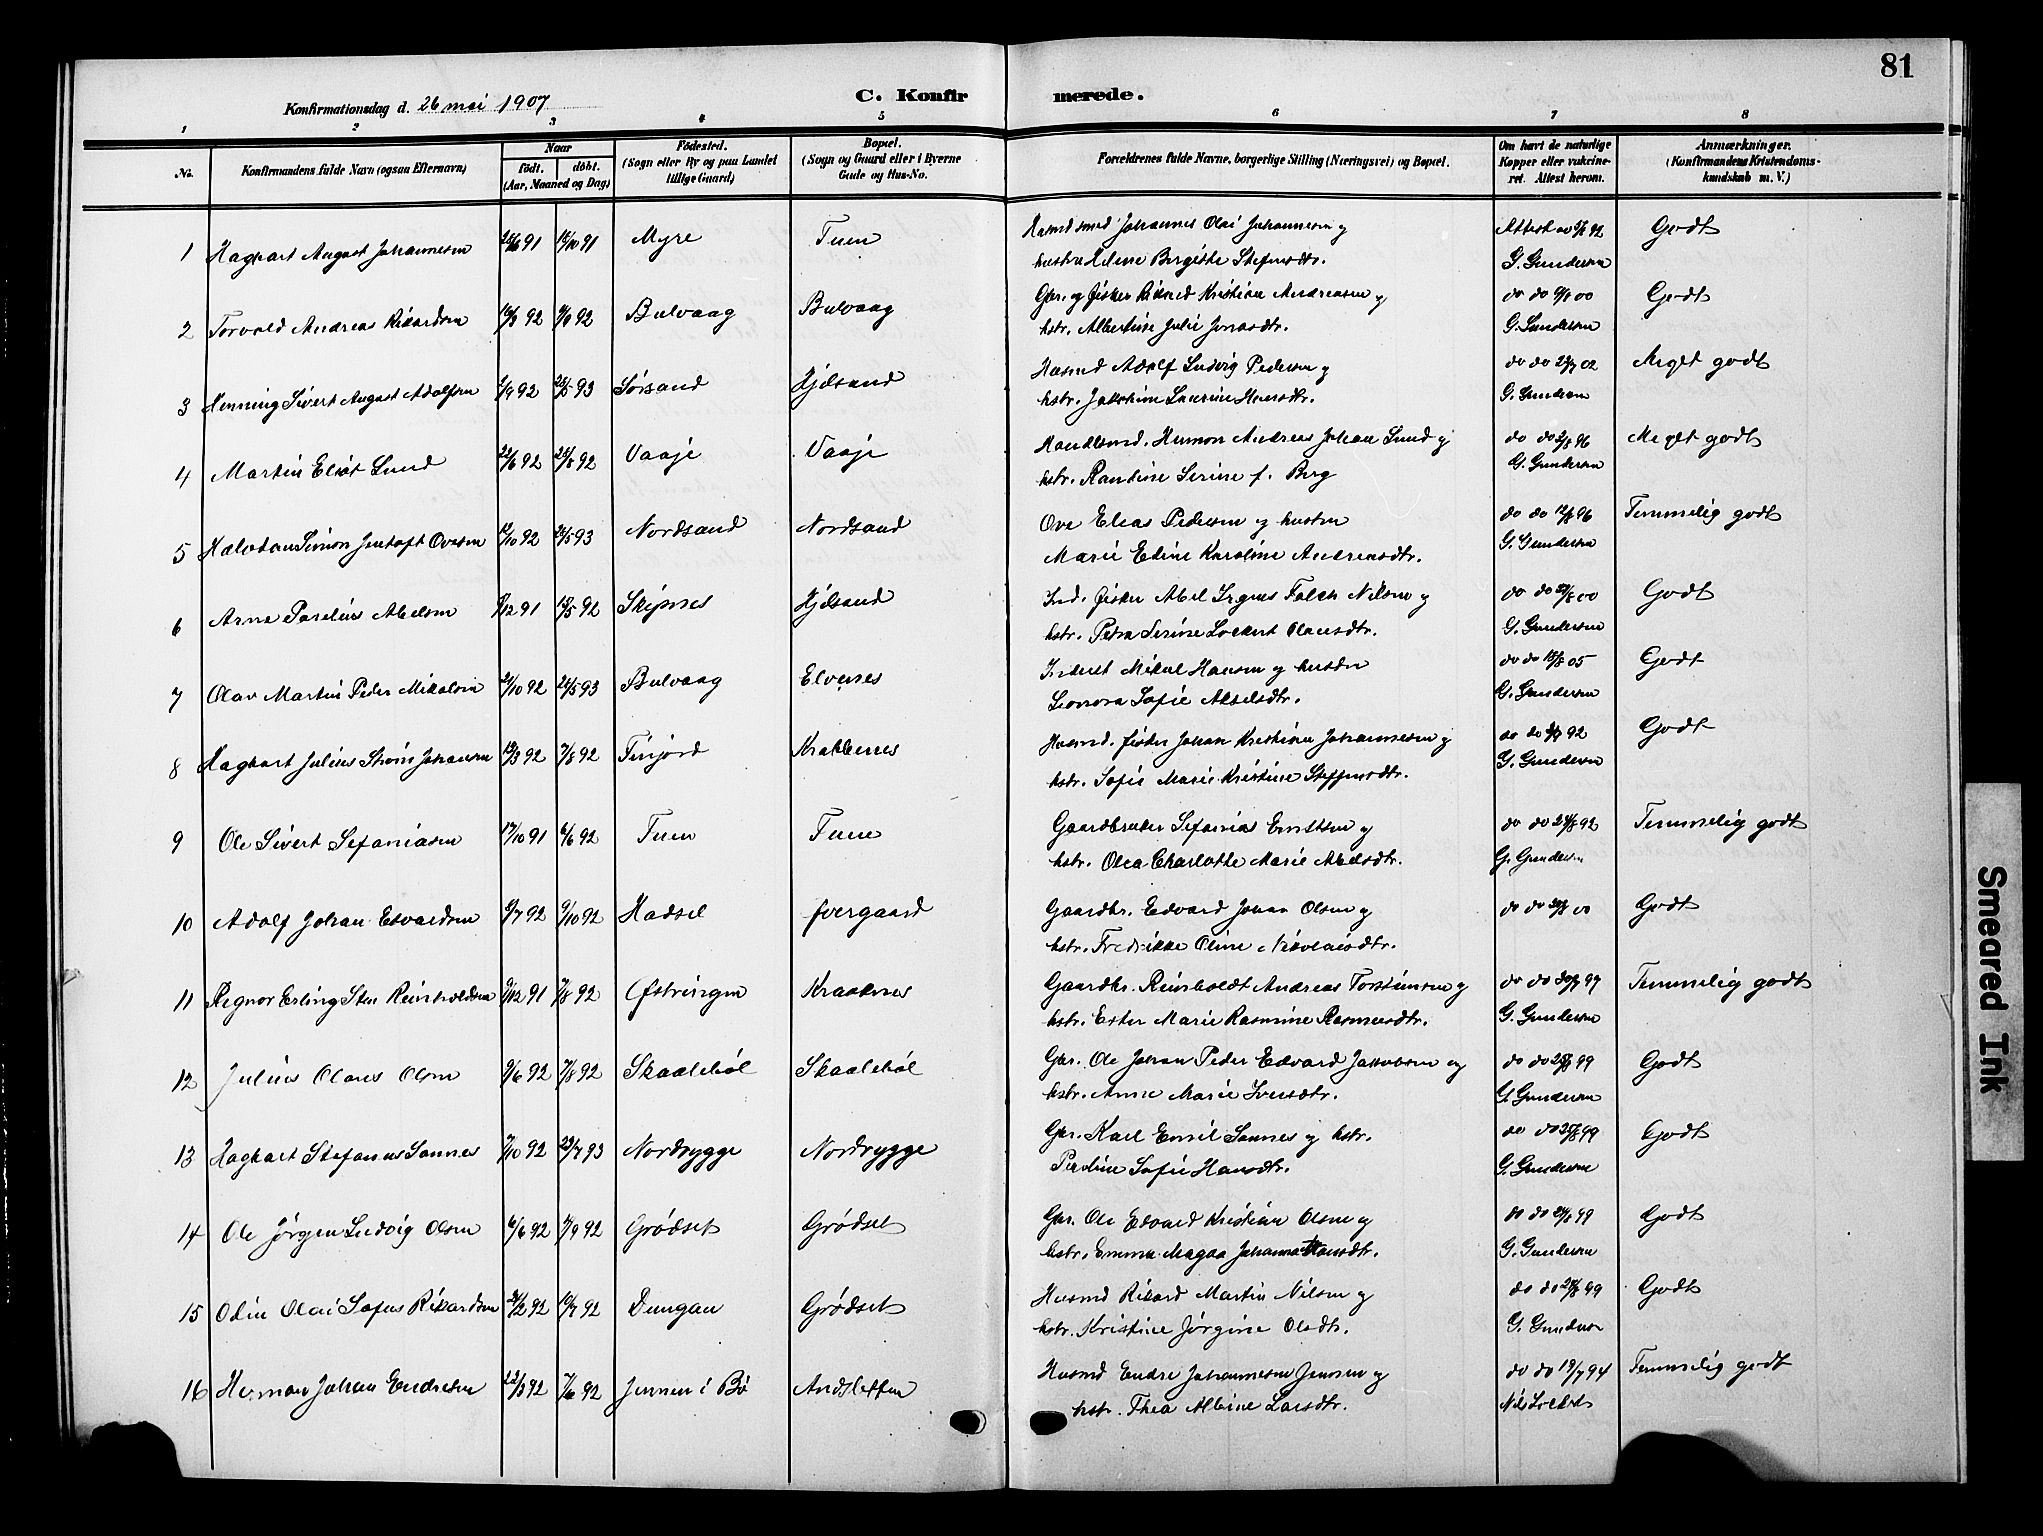 81
Konfirmationsdag d. 26 mai 1907
C. Konfir merede.
1 2 3 4 5 6 7 8
No.
Konfirmandens fulde Navn (ogsaa Efternavn)
Naar
født. døbt.
(Aar, Maaned og Dag)
Fødested.
(Sogn eller By og paa Landet
tillige Gaard)
Bopæl.
(Sogn og Gaard eller i Byerne
Gade og Hus-No.
Forældrenes fulde Navne, borgerlige Stilling (Næringsvei) og Bopæl.
Om havt de naturlige
Kopper eller vakcine-
ret. Attest herom.
Anmærkninger.
(Konfirmandens Kristendoms-
kundskab m. V.)
1 Hagbart August Johannessen 91 91 Myre Tuen Husmd Johannes Olai Johannesen og Attest 92 Godt
hustru Helene Birgitte Stefensdtr. G. Gundersen
2 Torvald Andreas Rikardsen 92 92 Bulvaag Bulvaag Gbr. og fisker Rikard Kristian Andreasen og do do 00 Godt
hstr. Albertine Julie Jonasdtr. G. Gundersen
3 Henning Sivert August Adolfsen 1/9 92 28/5 93 Sørsand Hjelsand Husmd Adolf Ludvig Pedersen og do do 02 Meget godt
hstr. Jakobine Laurine Hansdtr. G. Gundersen
4 Martin Eliot Lund 22/6 92 28/8 92 Vaaje Vaaje Handlsmd. Human Andreas Johan Lund og do do 96 Meget godt
hstr. Randine Serine f. Berg G. Gundersen
5 Halvdan Simon Jentoft Ovesen 12/10 92 28/5 93 Nordsand Nordsand Ove Elias Pedersen og hustru do do 96 Temmelig godt
Marie Edine Karoline Andreasdtr. G. Gundersen
6 Arne Parelius Abelsen 12 91 5 92 Skipnes Hjelsand Ind. fisker Abel Falch Nilsen og do do 00 Godt
hstr. Petra Serine Lockert Olausdtr. G. Gundersen
7 Olav Martin Peder Mikalsen 2/10 92 21/5 93 Bulvaag Elvenes Inderst Mikal Hansen og hustru do do 15/8 05 Godt
Leonora Sofie Akselsdtr. G. Gundersen
8 Hagbart Julius Strøm Johansen 13/3 92 7/8 92 Finjord Krakbernes Husmd. fisker Johan Kristian Johannesen og do do 92 Godt
hstr. Sofie Marie Kristine Steffensdtr. G. Gundersen
9 Ole Sivert Sefaniasen 17/10 91 6/6 92 Tuen Tuen Gaardbruker Sefanias Enitsen og do do 92 Temmelig godt
hstr. Olea Charlotte Marie Abelsdtr. G. Gundersen
10 Adolf Johan Edvardsen 7 92 9/10 92 Hadsel Gaardbr. Edvard Johan Olsen og do do 00 Godt
hstr. Fredrikke Oline Nikolaisdtr.
11 Regnor Erling Sten Reinholdsen 9/12 91 7/8 92 Østringen Kraaknes Gaardbr. Reinholdt Andreas Torstensen og do do 97 Temmelig godt
hstr. Ester Marie Rasmine Rasmusdtr. G. Gundersen
12 Julius Olaus Olsen 9/6 92 7/8 92 Skaalebøl Skaalebøl Gbr. Ole Johan Peder Edvard Jakobsen og do do 99 Godt
hstr. Anne Marie Iversdtr. G. Gundersen
13 Hagbart Stefanus Sannes 7/10 92 23/7 93 Nordrygge Nordrygge Gbr. Karl Emil Sannes og hstr. do do 99 Godt
Perdine Sofie Hansdtr. G. Gundersen
14 Ole Jørgen Ludvig Olsen 6/6 92 9 92 Grødset Grødset Gbr. Ole Edvard Kristian Olsen og do do 99 Godt
hstr. Emma Magda Johanna Hansdtr. G. Gundersen
15 Odin Olai Sofus Rikardsen 2 92 10/7 92 Dungan Grødset Husmd Rikard Martin Nilsen og do do 99 Godt
hstr. Kristine Jørgine Olsdtr. G. Gundersen
16 Herman Johan Endresen 22/3 92 7/6 92 Jennen i Bø Andsletten Husmd Endre Johannesen Jensen og do do 19/7 94 Temmelig godt
hstr. Thea Albine Larsdtr. Nils Lockert
Smeared Ink